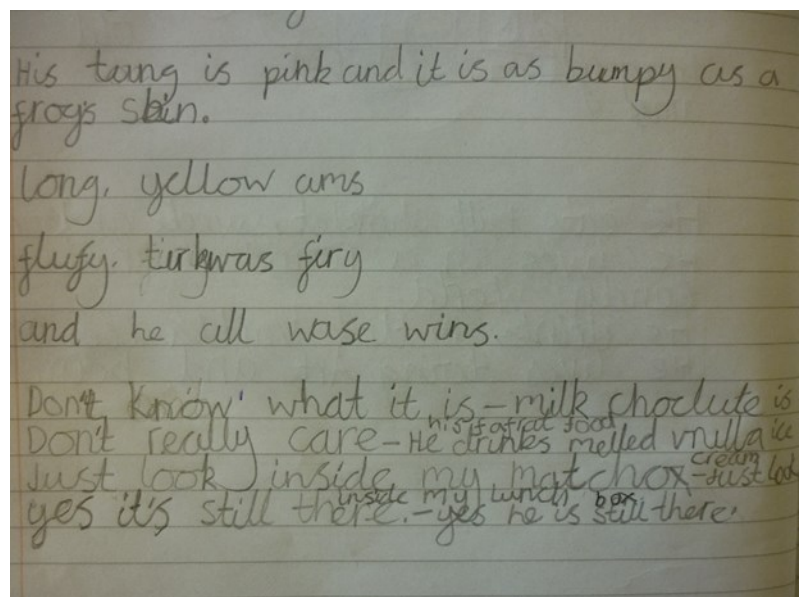 His tung is pink and it is as bumpy as a
frog's skin.
long, yellow ams
flufy, tirkwas firy
and he all wase wins.
Don't Know what it is - milk choclute is
his fafirat food
Don't really care - He drinks melled vnulla ice
cream
Just look inside my matchox - Just look
inside my lunch box
yes it's still there. - yes he is still there.